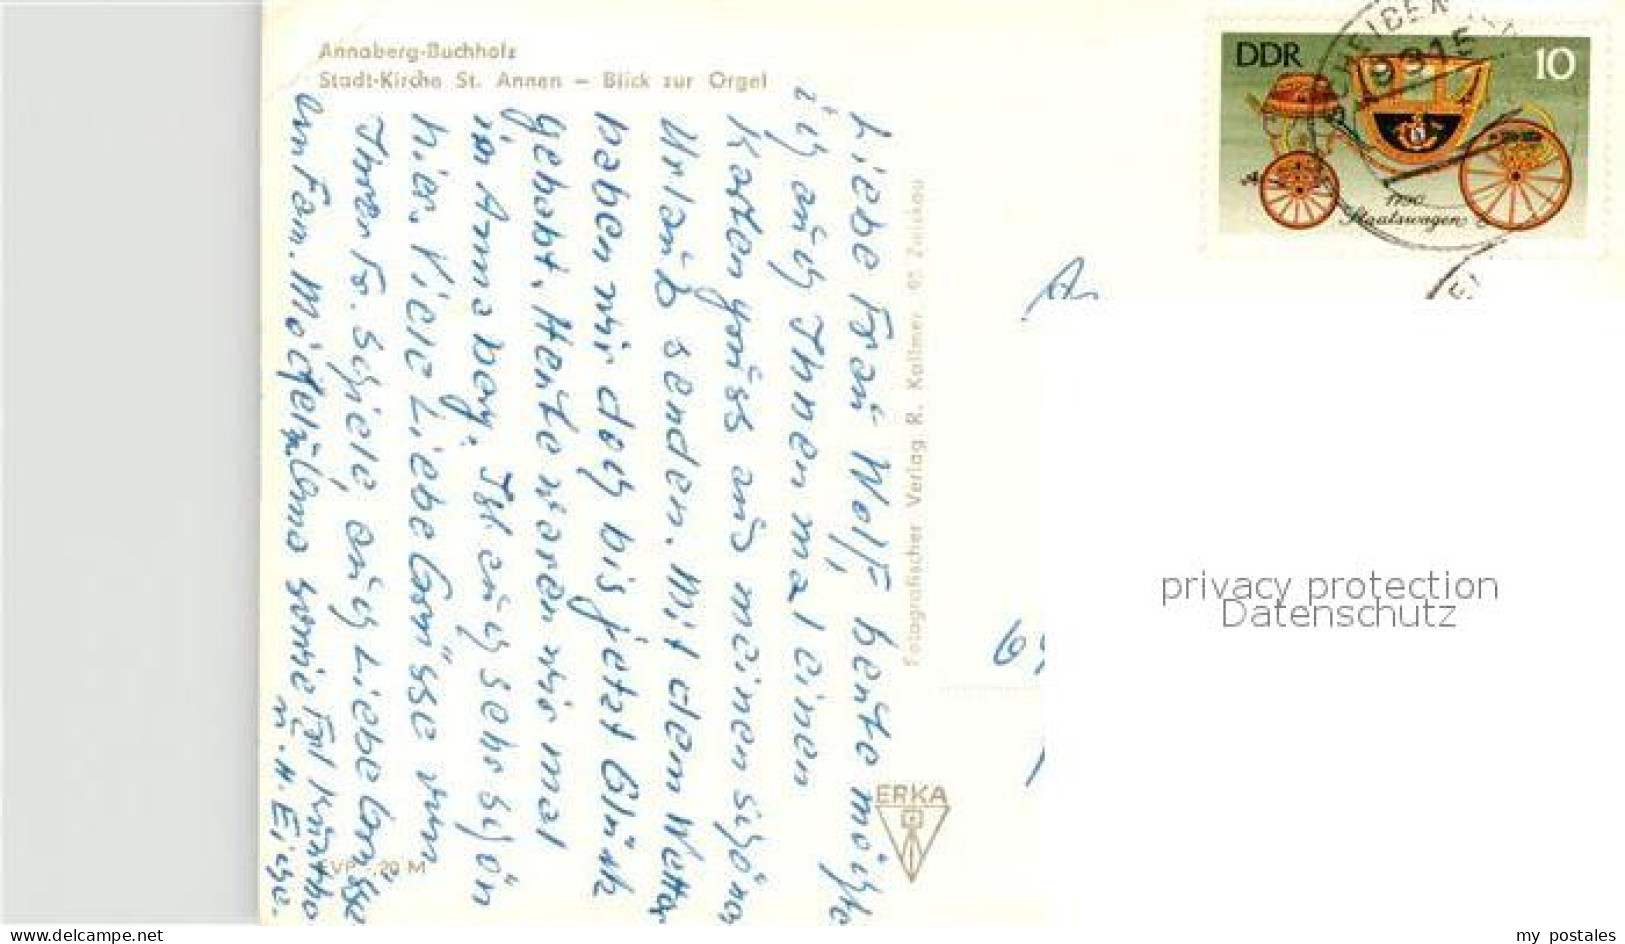 Annaberg-Buchholz
Stadt-Kirche St. Annen – Blick zur Orgel
DDR
10
1790
Staatswagen
9315
Liebe Frau Wolf, heute möchte
ich auch Ihnen mal einen
Karten gruss aus meinen schönen
Urlaub senden. Mit dem Wetter
haben wir doch bis jetzt Glück
gehabt. Heute waren wir mal
in Annaberg. Ist auch sehr schön
hier. Viele Liebe Grüsse von
Ihrer Fr. Schiele, auch Liebe Grüsse
an Fam. sowie Frl.
u. H.
Fotografischer Verlag R. Kallmer, 95 Zwickau
ERKA
EVP -,20 M
privacy protection
Datenschutz
www.delcampe.net
my_postales